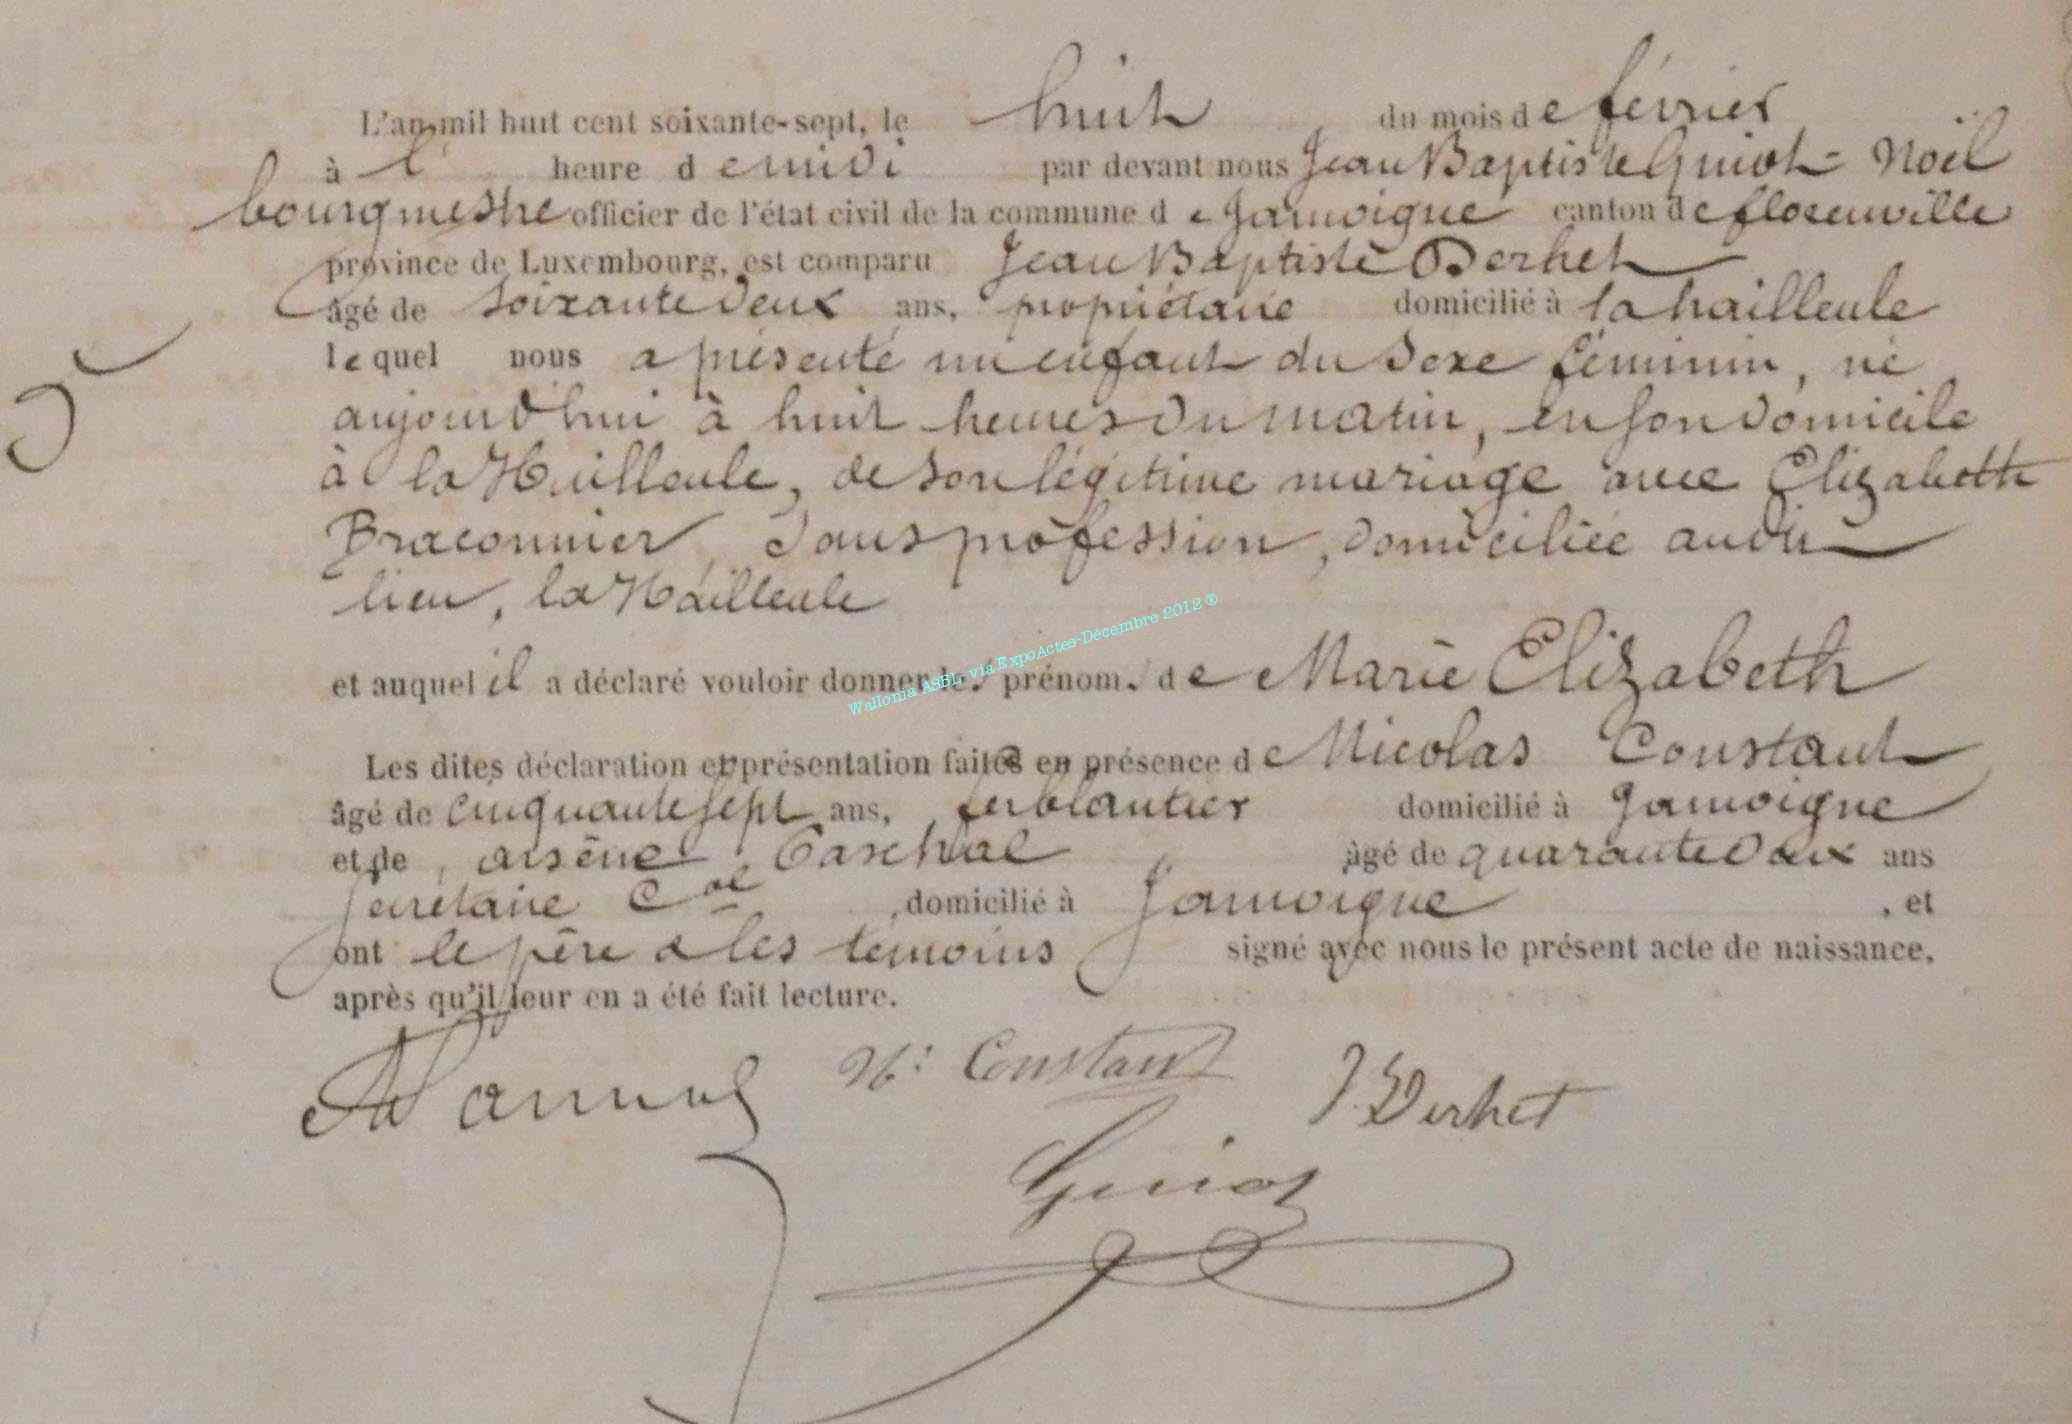 L'an mil huit cent soixante-sept, le huit du mois de février
à l' heure de midi par devant nous Jean Baptiste Guiot-Noël
bourgmestre officier de l'état civil de la commune de Jamoigne canton de florenville
province de Luxembourg, est comparu Jean Baptiste Derhet
âgé de soixante deux ans, propriétaire domicilié à la hailleule
lequel nous a présenté un enfant du sexe féminin, né
aujourd'hui à huit heures du matin, en son domicile
à la Hailleule, de son légitime mariage avec Elizabeth
Braconnier, sans profession, domiciliée au dit
lieu, la Hailleule
et auquel il a déclaré vouloir donner les prénoms de Marie Elizabeth
Les dites déclaration et présentation faites en présence de Nicolas Constant
âgé de cinquante sept ans, ferblantier domicilié à Jamoigne
et de arsène âgé de quarante deux ans
secrétaire Cal domicilié à Jamoigne, et
ont le père & les témoins signé avec nous le présent acte de naissance,
après qu'il leur en a été fait lecture.
N: Constant J Derhet
Guiot
Wallonia ASBL, via ExpoActes-Décembre 2012 ®